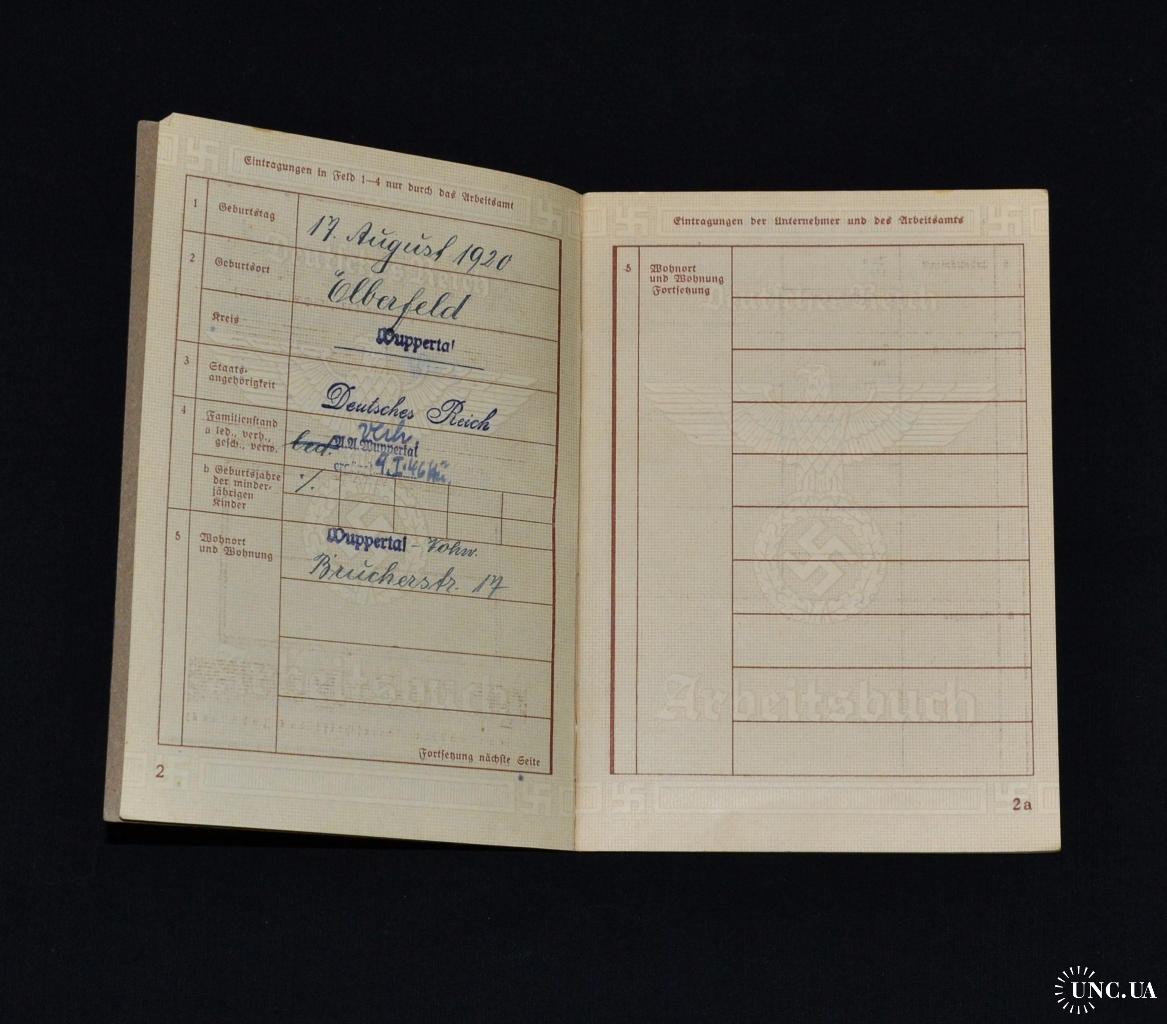 Eintragungen in Feld 1–4 nur durch das Arbeitsamt
1 Geburtstag 17. August 1920
2 Geburtsort Elberfeld
Kreis Wuppertal
3 Staats-
angehörigkeit Deutsches Reich
4 Familienstand
a led., verh.,
gesch., verw. led. verh.
A.A. Wuppertal
9.I.46
b Geburtsjahre
der minder-
jährigen
Kinder ·/.
5 Wohnort
und Wohnung Wuppertal – Vohw.
Brucherstr. 17
Arbeitsbuch
Fortsetzung nächste Seite
2
Eintragungen der Unternehmer und des Arbeitsamts
5 Wohnort
und Wohnung
Fortsetzung
Deutsches Reich
Arbeitsbuch
2a
UNC.UA